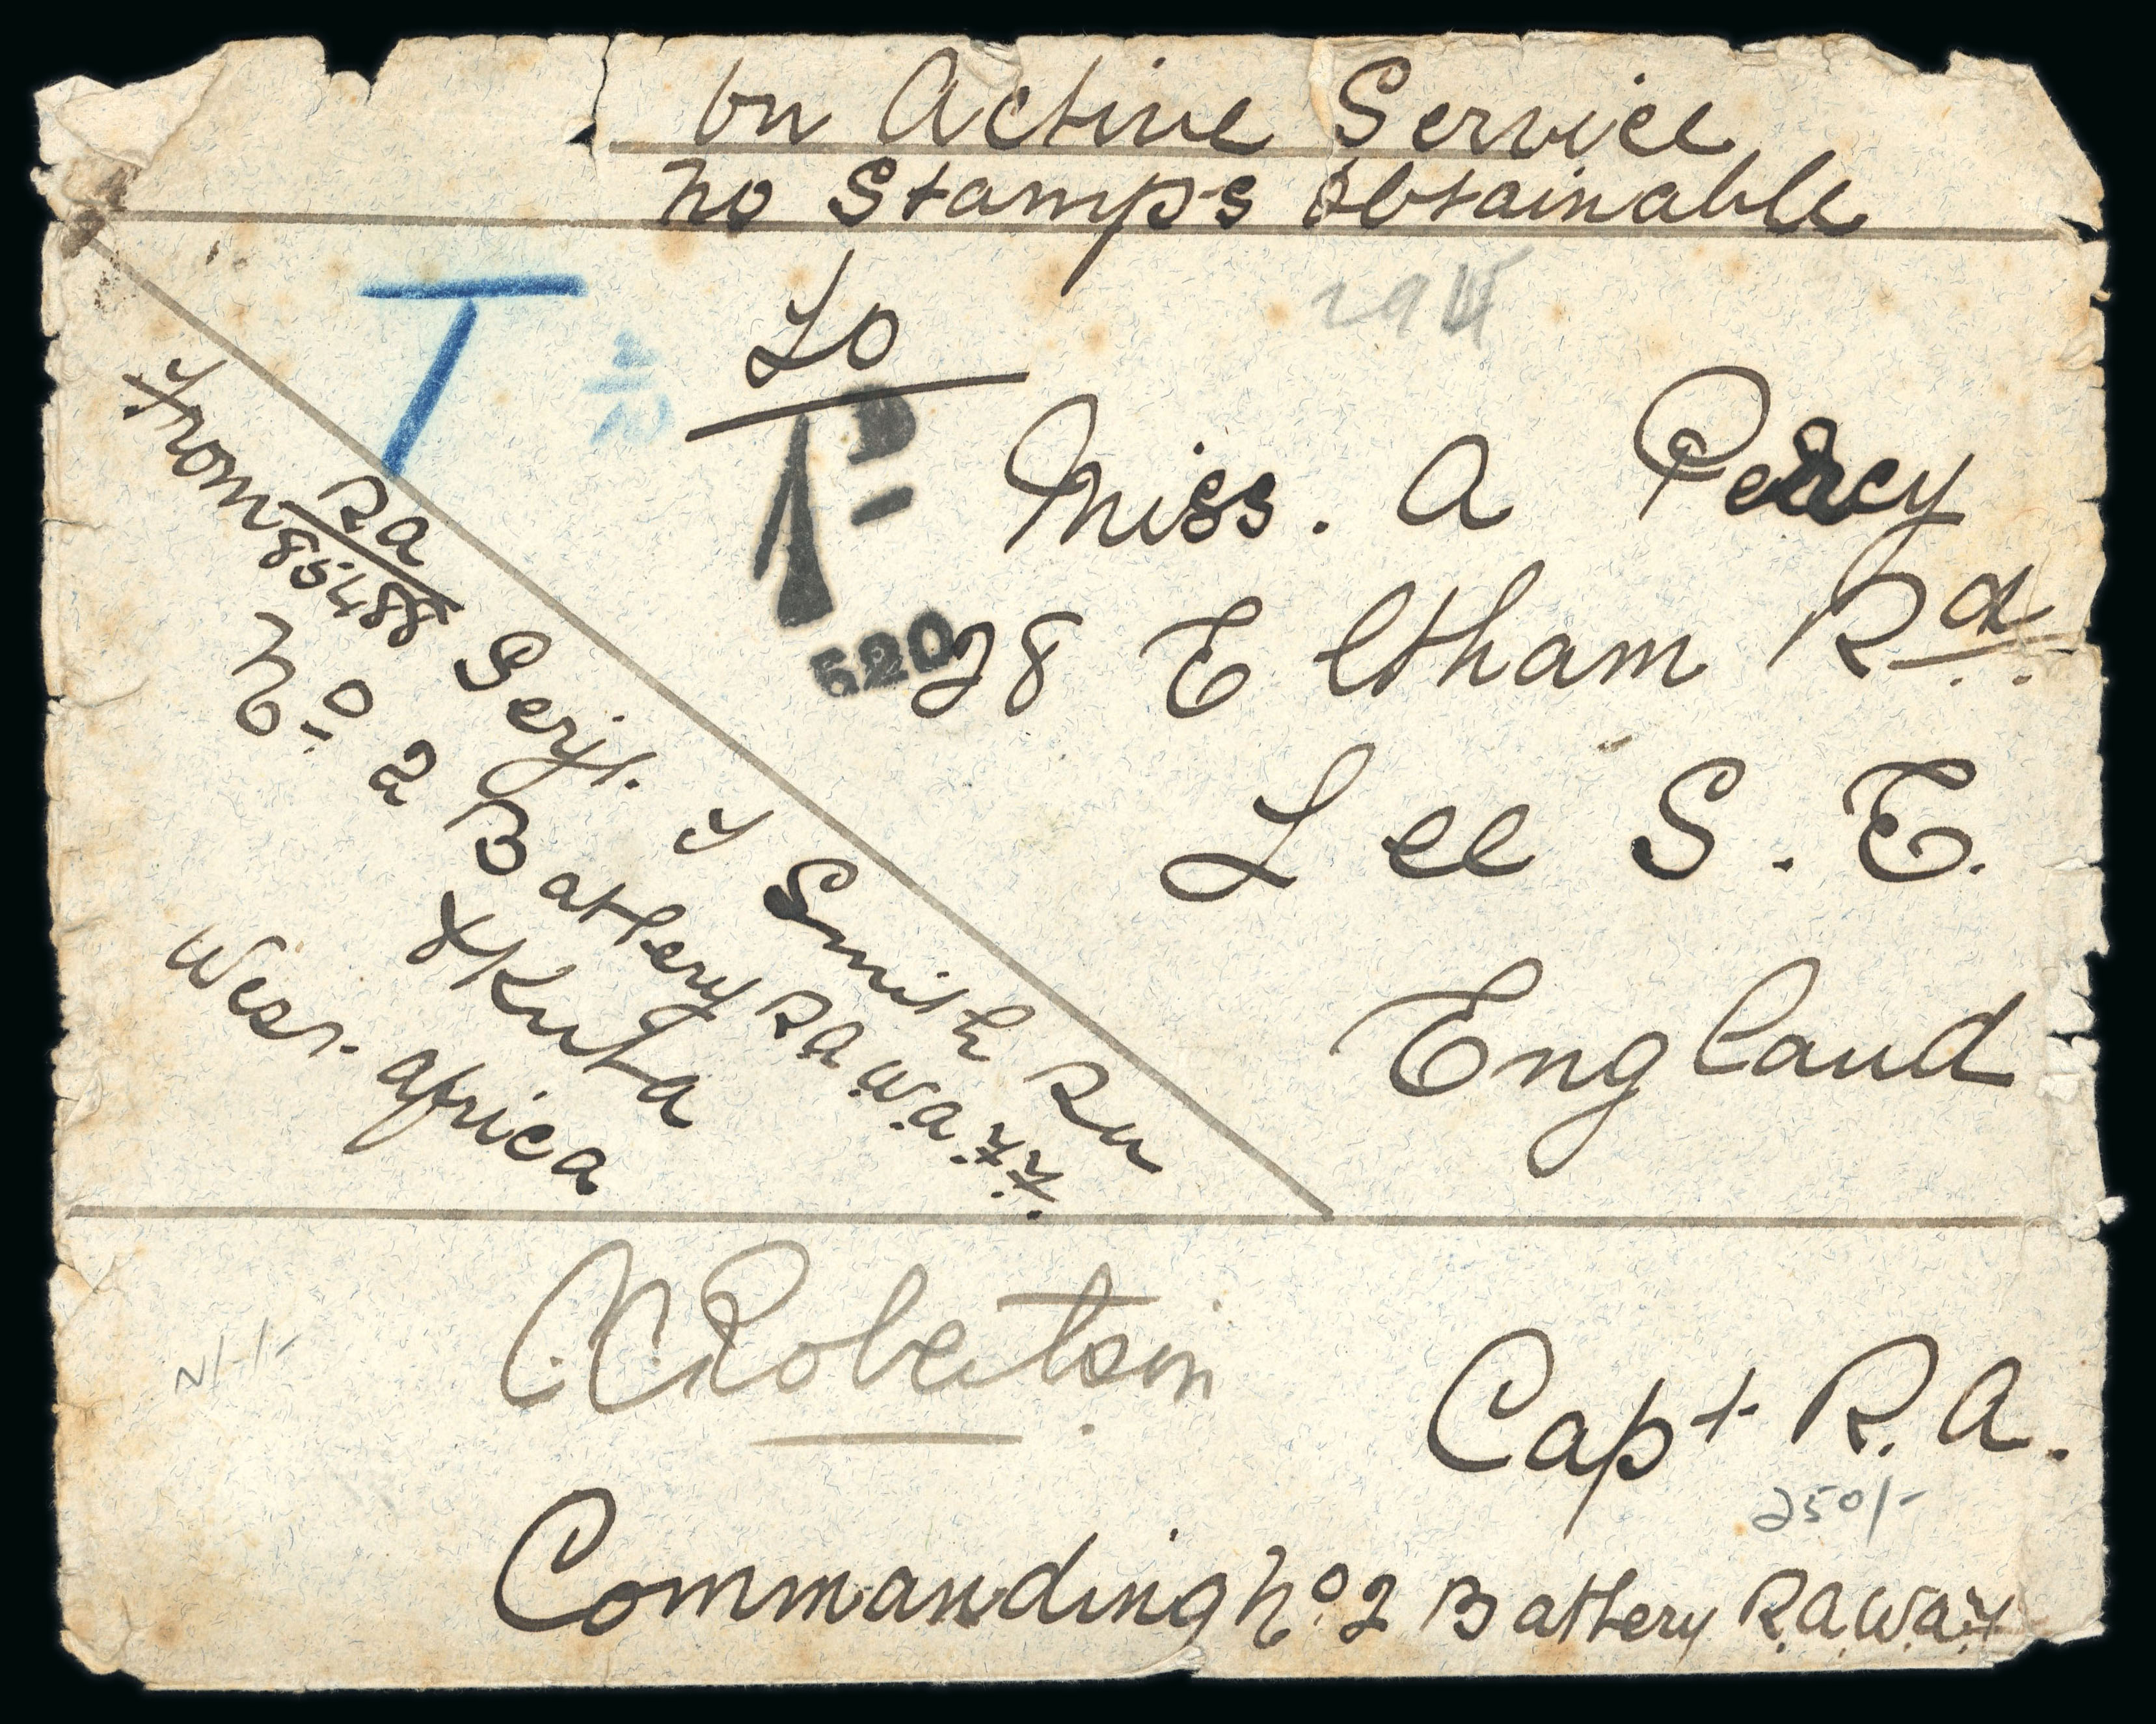 On Active Service
No Stamps Obtainable
To
Miss. A Percy
28 Eltham Rd.
Lee S.E.
England
T
1D
520
From
RA
85488 Serjt. F Smith RA
No 2 Battery R.A.W.A.F.F.
Kuta
West. Africa
C.C. Robertson
Capt R.A.
250/-
Commanding No. 2 Battery R.A.W.A.F.F